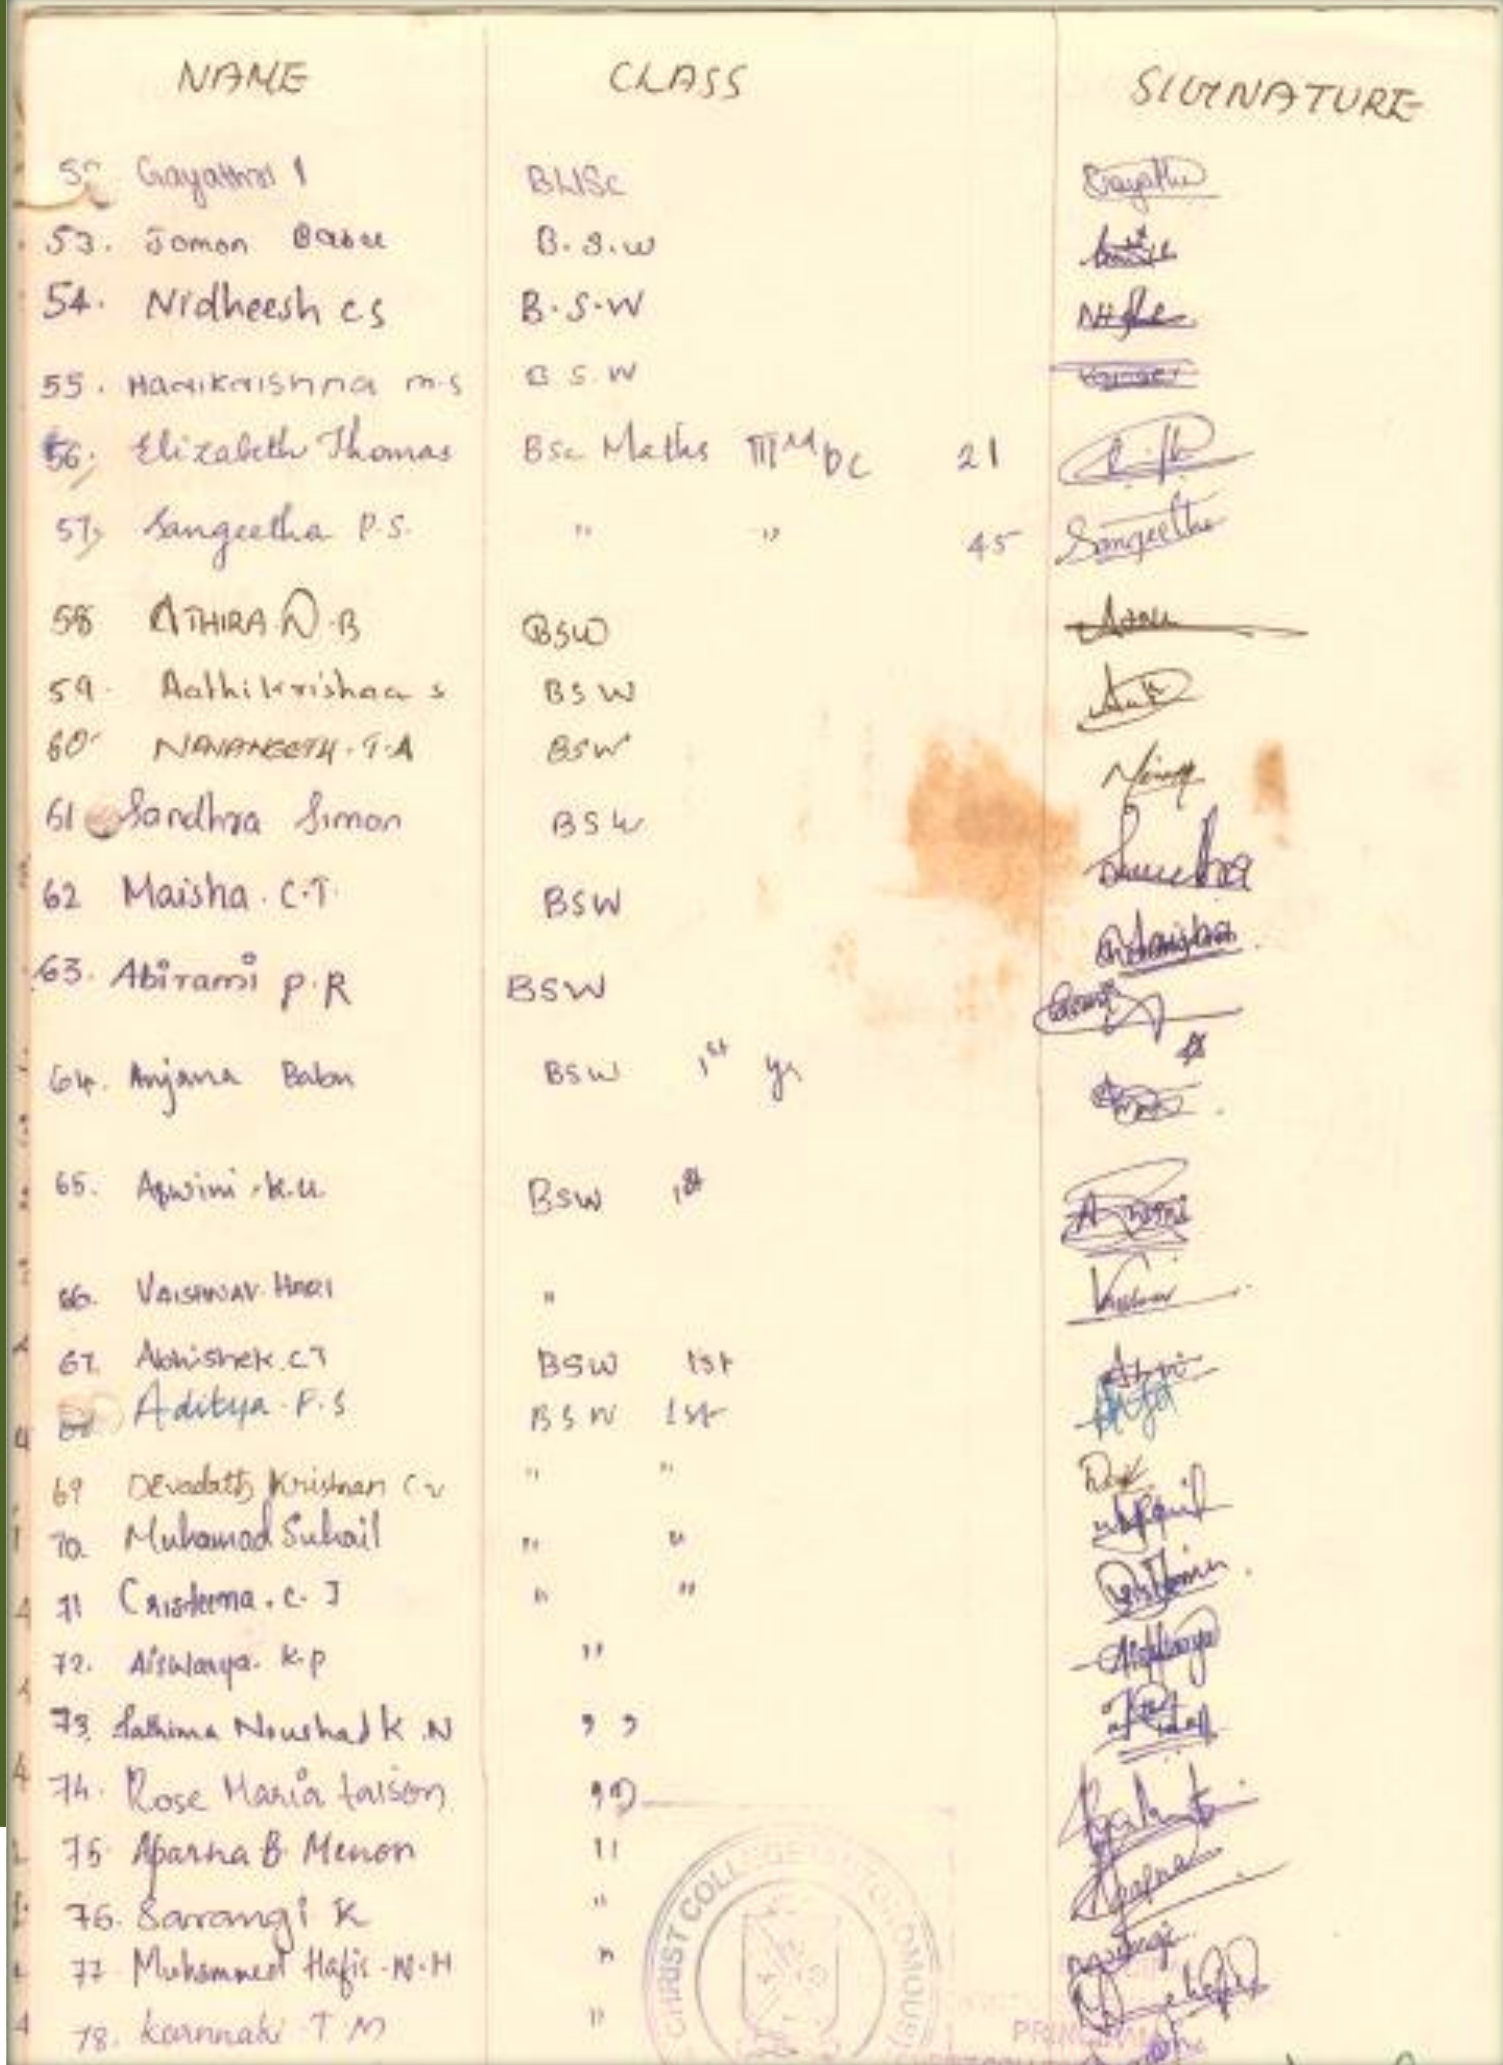 NAME CLASS SIGNATURE
Gayathri I BLISc Gayathri
53. Jomon Babu B.S.W
54. Nidheesh C S B.S.W
55. Harikrishna m.s B S.W
56. Elizabeth Thomas BSc Maths IIIrd DC 21
57. Sangeetha P.S. " " 45 Sangeetha
58 ATHIRA.N.B BSW
59. Aathikrishnaa s BSW
60. NAVANEETH.T.A BSW
61 Sandhra Simon BSW
62 Maisha.C.T. BSW
63. Abirami P.R BSW
64. Anjana Babu BSW 1st yr
65. Aswini.K.U. BSW 1st
66. VAISHNAV.HARI "
67. Abhishek.CT BSW 1st
Aditya.P.S BSW 1st
69 Devadath Krishnan C V " "
70. Muhamad Suhail " "
71 Cristeena.C.J " "
72. Aiswarya.K.P " Aishwarya
73. Fathima Noushad K.N "
74. Rose Maria taison "
75. Aparna B Menon "
76. Sarangi K "
77 Muhammed Hafis.N.H "
78. Karnnaki T M "
CHRIST COLLEGE (AUTONOMOUS)
PRINCIPAL